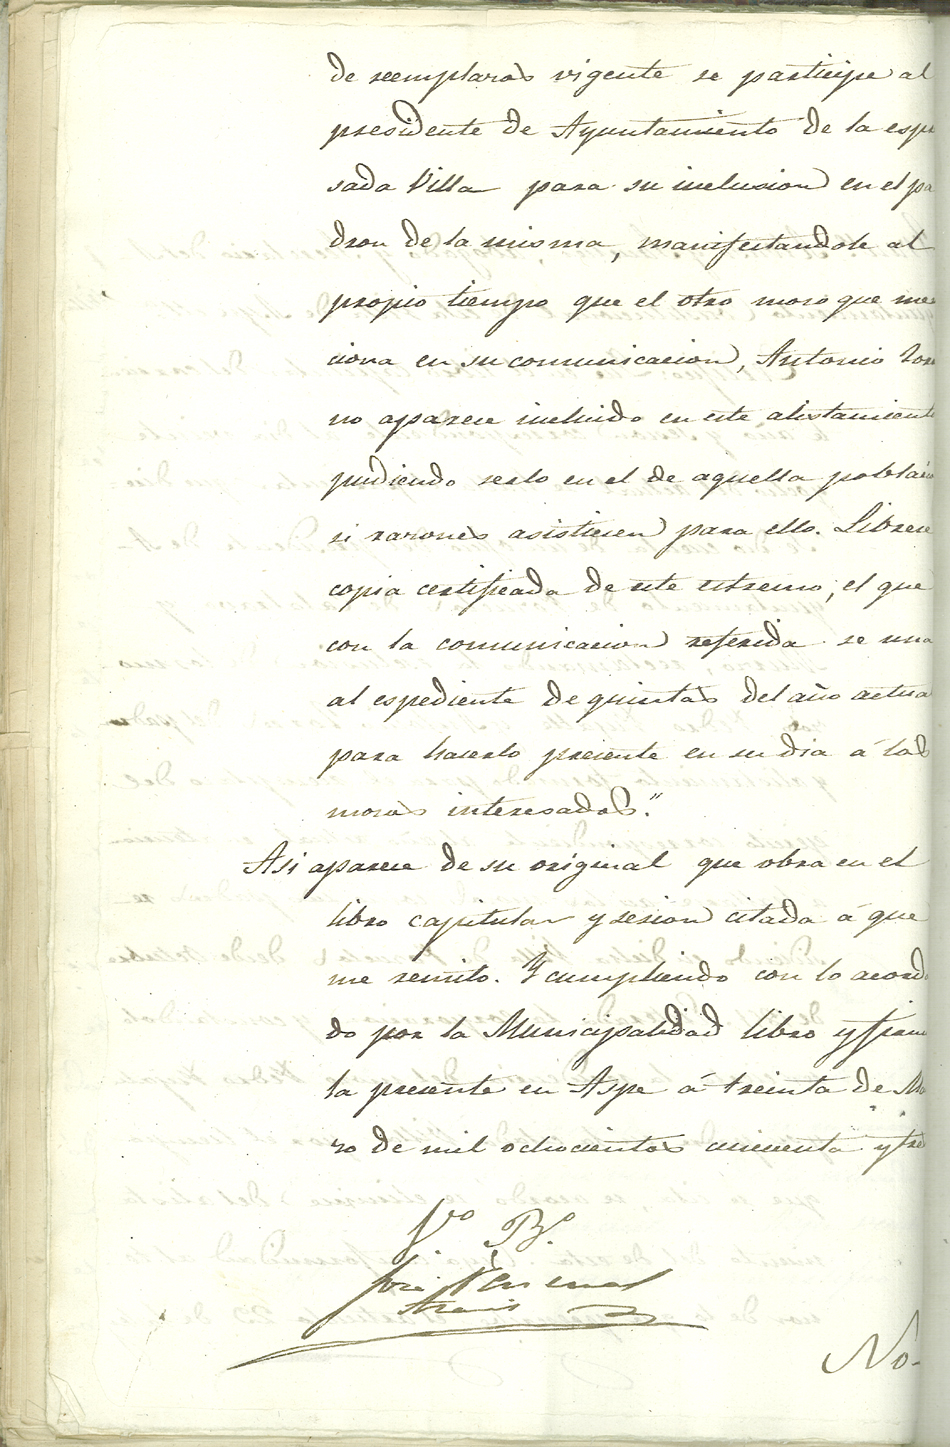 de reemplazos vigente se participe al
presidente de Ayuntamiento de la espre
sada Villa para su inclusion en el pa
dron de la misma, manifestandole al
propio tiempo que el otro moso que men
ciona en su comunicacion, Antonio
no aparece incluido en este alistamiento
pudiendo serlo en el de aquella poblacion
si razones asistiesen para ello. Librese
copia certificada de este estremo, el que
con la comunicacion referida se una
al espediente de quintas del año actual
para hacerlo presente en su dia á los
mosos interesados."
Asi aparece de su original que obra en el
libro capitular y sesion citada á que
me remito. Y cumpliendo con lo acorda
do por la Municipalidad libro y firmo
la presente en Aspe á treinta de Mar
zo de mil ochocientos cincuenta y tres
Vo. Bo.
José
No-